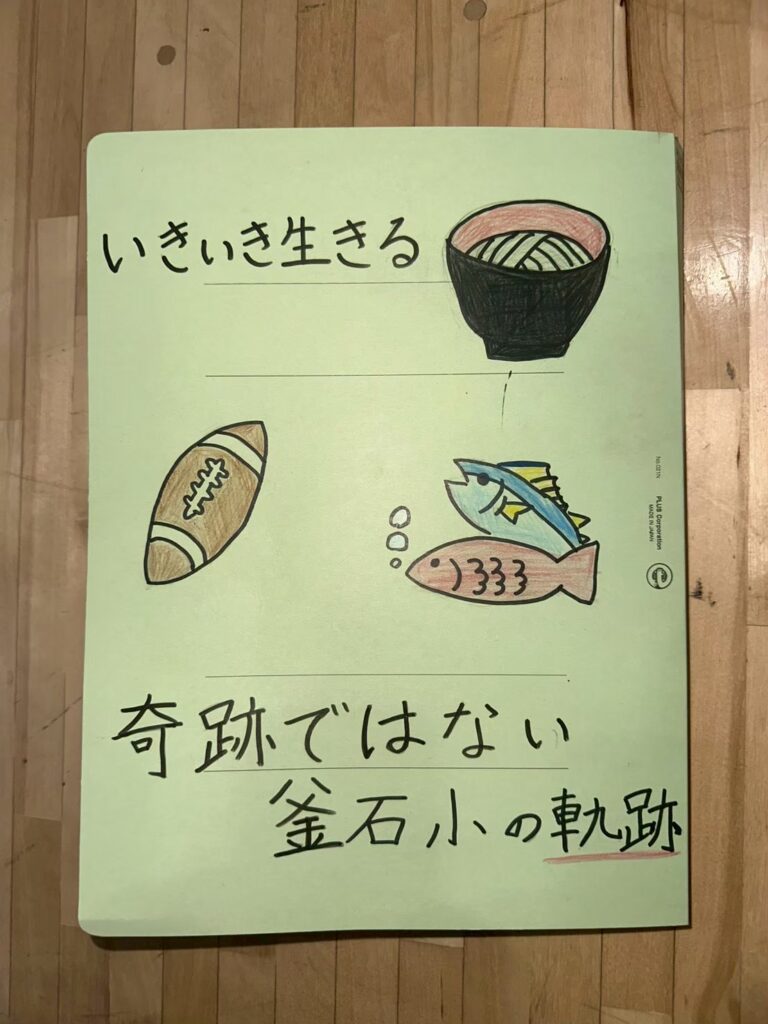 いきいき生きる
No.021N
PLUS Corporation
MADE IN JAPAN
奇跡ではない
釜石小の軌跡